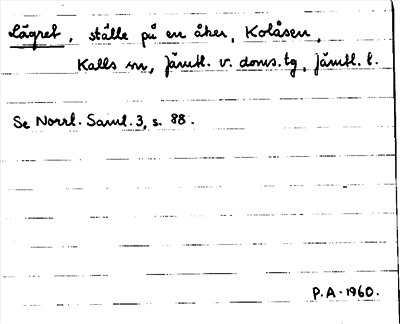 Lägret, ställe på en åker, Kolåsen,
Kalls sn, Jämtl. v. doms. tg, Jämtl. l.
Se Norrl. Saml. 3, s. 88.
P.A. 1960.